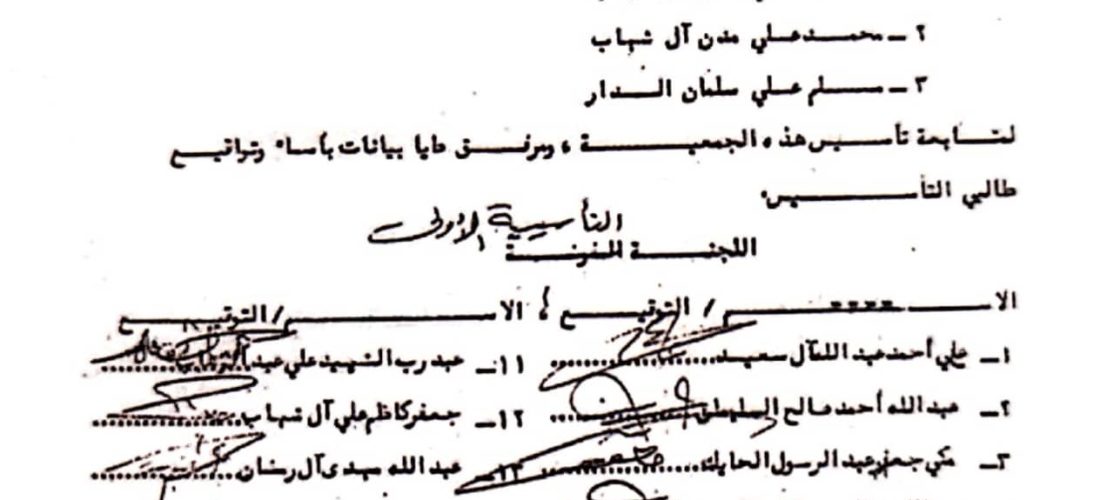 ٢ – محمد علي مدن آل شهاب
٣ – سلم علي سلمان الدار
لمتابعة تأسيس هذه الجمعية ، ومرفق طيا بيانات بأسماء وتواقيع
طالبي التأسيس.
التأسيسية الأولى
اللجنة المفوضة
الاسم / التوقيع ؛ الاسم / التوقيع
١– علي أحمد عبد الله آل سعيد ١١– عبد رب الشهيد علي
٢– عبد الله أحمد صالح ١٢– جعفر كاظم علي آل شهاب
٣– مكي جعفر عبد الرسول الحايك ١٣– عبد الله مهدي آل رضان